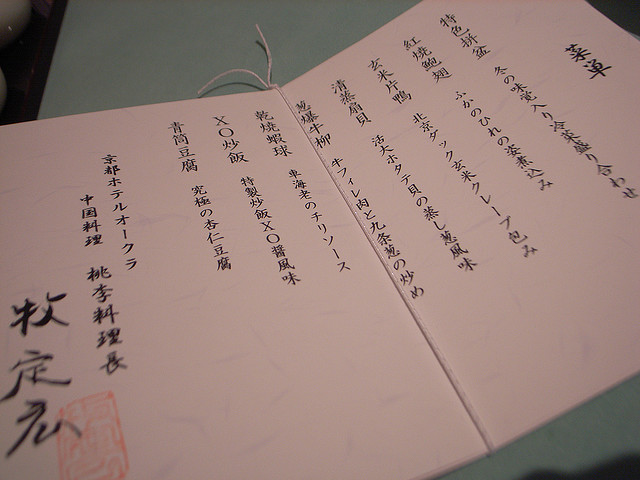 菜単
特色拼盆
冬の味覚入り冷菜盛り合わせ
紅焼鮑翅
ふかのひれの姿煮込み
玄米片鴨
北京ダック玄米クレープ包み
清蒸扇貝
活大ホタテ貝の蒸し葱風味
葱爆牛柳
牛フィレ肉と九条葱の炒め
乾焼蝦球
車海老のチリソース
XO炒飯
特製炒飯XO醤風味
青筒豆腐
究極の杏仁豆腐
京都ホテルオークラ
中国料理 桃李料理長
牧定広